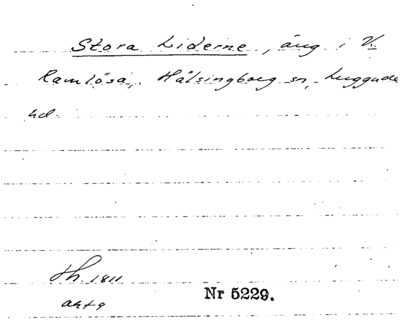 Stora Liderne, äng i V.
Ramlösa, Hälsingborg sn, Luggude
hd.
Th. 1811
akt 9
Nr 5229.